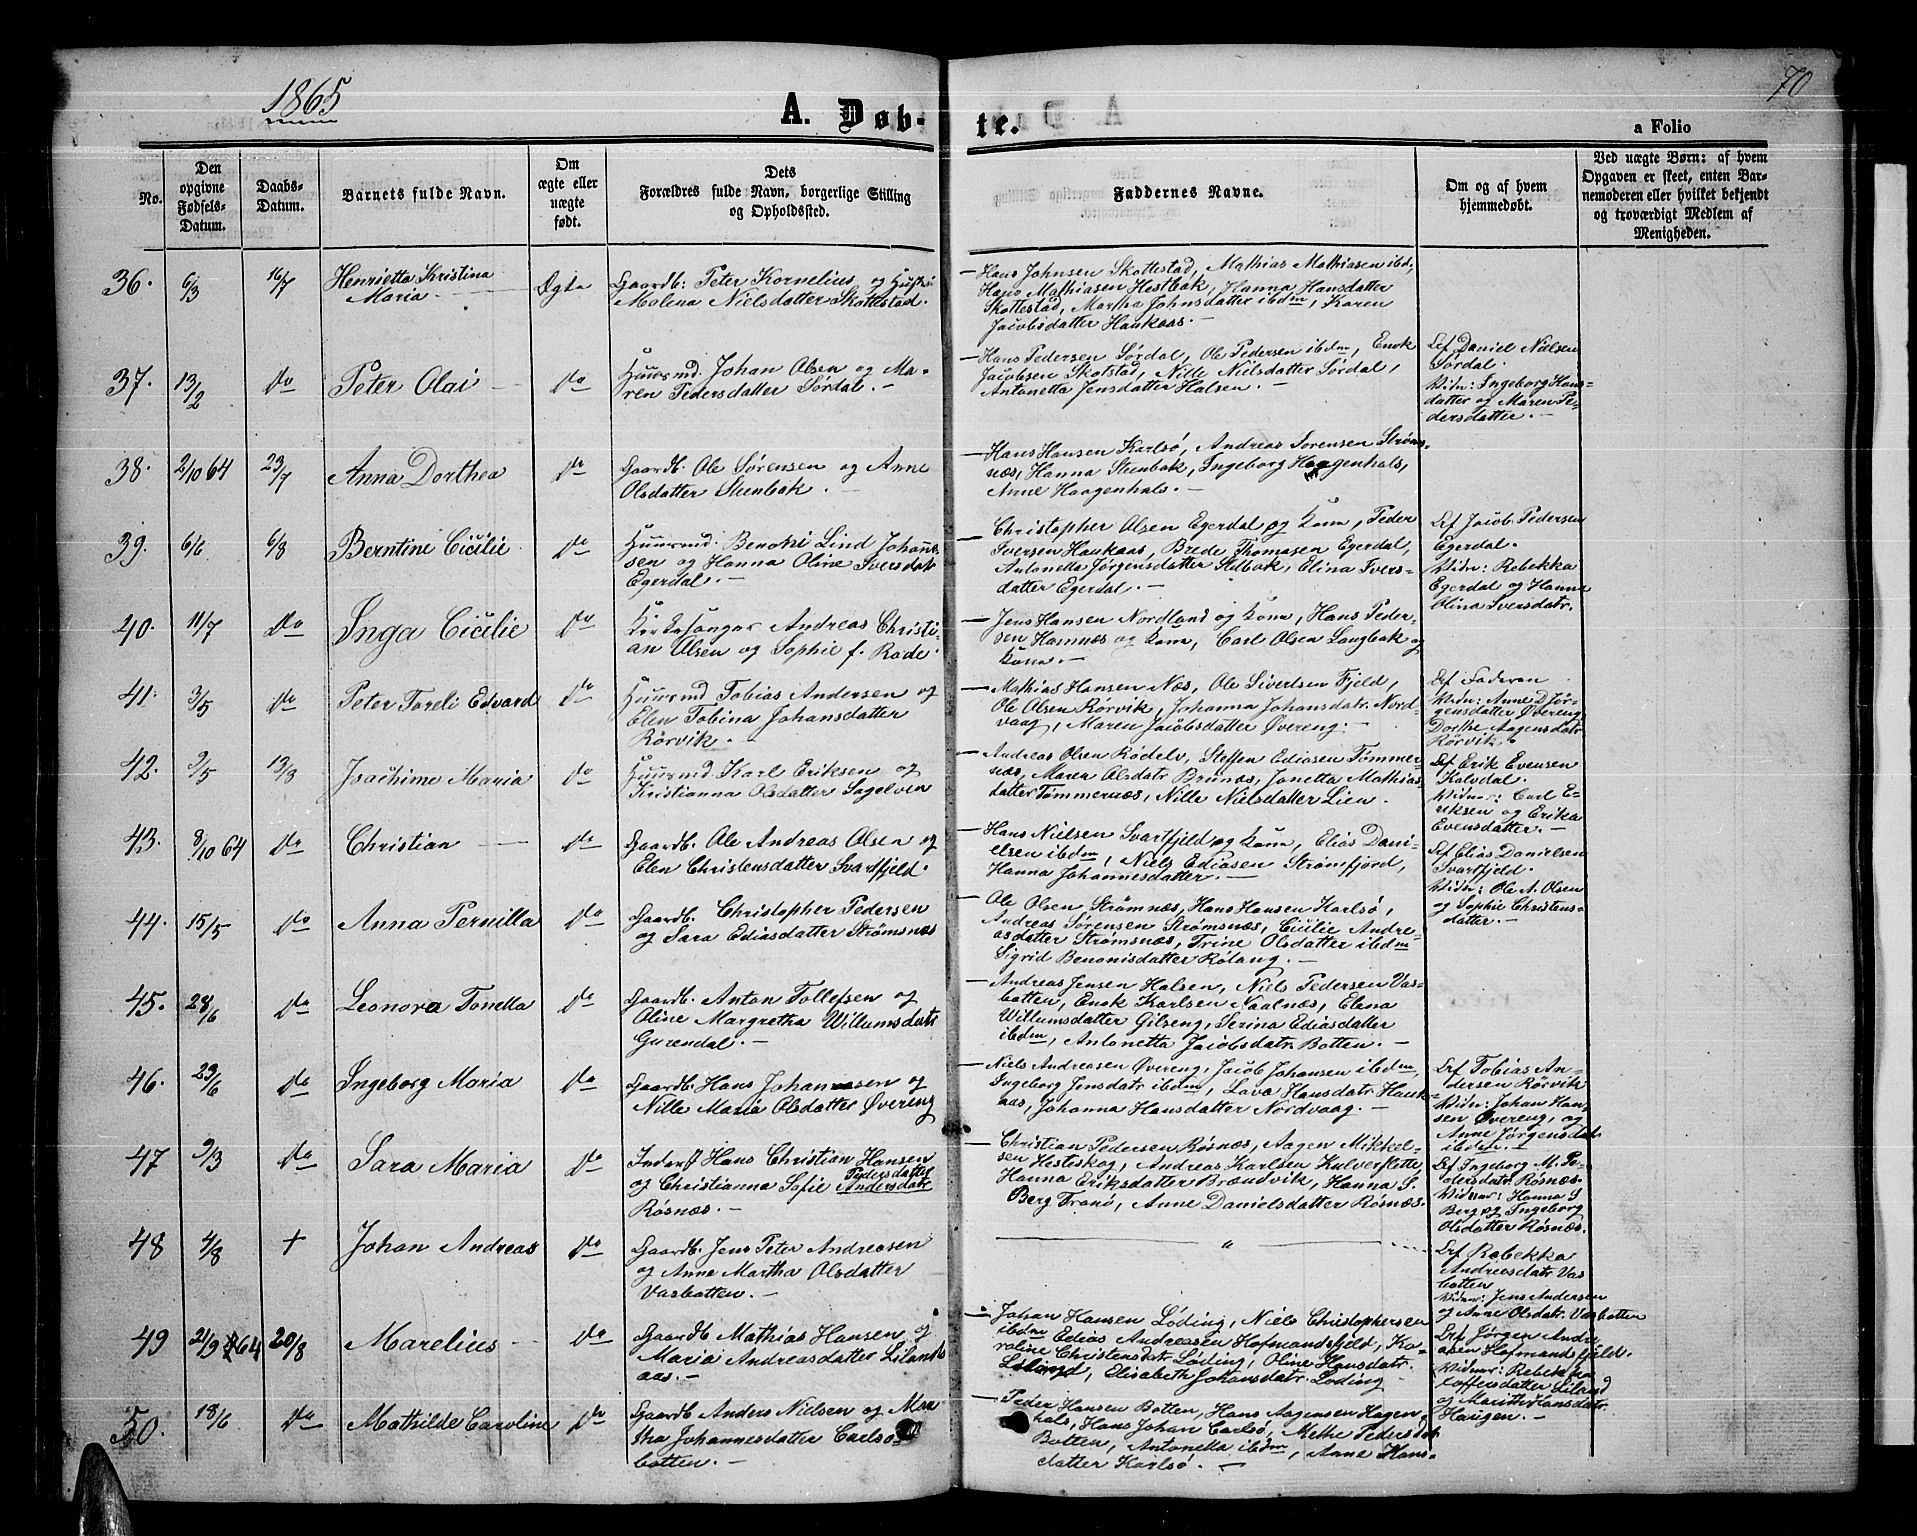 1865
70
A. Døb-
te.
a Folio
No.
Den
opgivne
Fødsels-
Datum.
Daabs-
Datum.
Barnets fulde Navn.
Om
ægte eller
uægte
født.
Dets
Forældres fulde Navn, borgerlige Stilling
og Opholdssted.
Faddernes Navne.
Om og af hvem
hjemmedøbt.
Ved uægte Børn: af hvem
Opgaven er skeet, enten Bar-
nemoderen eller hvilket bekjendt
og troværdigt Medlem af
Menigheden.
36. 6/3 16/7 Henrietta Kristina
Maria
Ægte
Gaardb: Peter Kornelius og Hustru
Malena Nielsdatter Skottestad.
Hans Johnsen Skottestad, Mathias Mathiasen ibd,
Hans Mathiasen Hestbak, Hanna Hansdatter
Skottestad, Martha Johnsdatter ibdm, Karen
Jacobsdatter Haukaas.
37. 13/2 Do Peter Olai Do
Huusmd. Johan Olsen og Ma-
ren Pedersdatter Sørdal.
Hans Pedersen Sørdal, Ole Pedersen ibdm, Enok
Jacobsen Skotstad, Nille Nielsdatter Sørdal,
Antonetta Jensdatter Halsen.
Af Daniel Nielsen
Sørdal.
Vidn: Ingeborg Hans-
datter og Maren Pe-
dersdatter.
38. 2/10 64 23/7 Anna Dorthea Do
Gaardb. Ole Sørensen og Anne
Olsdatter Stenbak.
Hans Hansen Karlsø, Andreas Sørensen Strøms-
næs, Hanna Stenbak, Ingeborg Haagenhals,
Anne Haagenhals.
39. 6/6 6/8 Berntine Cicilie Do
Huusmd. Benoni Lind Johan-
sen og Hanna Oline Iversdatr
Egerdal.
Christopher Olsen Egerdal og Kone, Peder
Iversen Haukaas, Brede Thomasen Egerdal,
Antonetta Jørgensdatter Selbak, Elina Ivers-
datter Egerdal.
Af Jacob Pedersen
Egerdal.
Vidn: Rebekka
Egerdal og Hanna
Olina Iversdatr.
40. 11/7 Do Inga Cicilie Do
Kirkesanger Andreas Christi-
an Olsen og Sophie f. Rode.
Jens Hansen Nordland og Kone, Hans Peder-
sen Hamnæs og Kone, Carl Olsen Langbak og
Kone.
41. 3/5 Do Peter Toreli Edvard Do
Huusmd Tobias Andersen og
Elen Tobina Johansdatter
Rørvik.
Mathias Hansen Næs, Ole Sivertsen Fjeld,
Ole Olsen Rørvik, Johanna Johansdatr. Nord-
vaag, Maren Jacobsdatter Øvereng.
Af Faderen
Vidn: Anne D Jør-
gensdatter Øvereng
Dorthe Aagensdatr
Rørvik.
42. 2/5 13/8 Joachime Maria Do
Huusmd. Karl Eriksen og
Kristianna Olsdatter Sagelven
Andreas Olsen Rødelv, Steffen Ediasen Tømmer-
næs, Maren Olsdatr Brunæs, Janetta Mathias-
datter Tømmernæs, Nille Nielsdatter Lien.
Af Erik Evensen
Kalvdal.
Vidner: Carl E-
riksen og Erika
Evensdatter.
43. 8/10 64 Do Christian Do
Gaardb. Ole Andreas Olsen og
Elen Christensdatter Svartfjeld.
Hans Nielsen Svartfjeld og Kone, Elias Dani-
elsen ibdm, Niels Ediasen Strømfjord,
Hanna Johannesdatter.
Af Elias Danielsen
Svartfjeld.
Vidn: Ole A. Olsen
og Sophie Christens-
datter.
44. 15/5 Do Anna Pernilla Do
Gaardb. Christopher Pedersen
og Sara Ediasdatter Strømsnæs
Ole Olsen Strømnæs, Hans Hansen Karlsø,
Andreas Sørensen Strømsnæs, Cicilie Andre-
asdatter Strømsnæs, Trine Olsdatter ibdm
Sigrid Benonisdatter Røtang.
45. 28/6 Do Leonora Tonetta Do
Gaardb. Anton Tollefsen og
Oline Margretha Willumsdatr
Gurendal.
Andreas Jensen Halsen, Niels Pedersen Vas-
botten, Enok Karlsen Naalnæs, Elena
Willumsdatter Gilseng, Serina Ediasdatter
ibdm, Antonetta Jacobsdatr. Botten.
46. 23/6 Do Ingeborg Maria Do
Gaardb. Hans Johannesen og
Nille Maria Olsdatter Øvereng
Niels Andreasen Øvereng, Jacob Johansen ibdm
Ingeborg Jensdatr ibdm, Lava Hansdatr Hauk-
aas, Johanna Hansdatter Nordvaag.
Af Tobias An-
dersen Rørvik
Vidn: Johan Han-
sen Øvereng, og
Anne Jørgensdatr
ibdm.
47 2/3 Do Sara Maria Do
Inderst Hans Christian Hansen
og Christianna Sofie Pedersdatter
Andersdatr
Røsnæs.
Christian Pedersen Røsnæs, Aagen Mikkel-
sen Hesteskog, Andreas Karlsen Kalverflette,
Hanna Eriksdatter Brændvik, Hanna S.
Berg Tranø, Anne Danielsdatter Røsnæs.
Af Ingeborg M. Pe-
dersdatr. Røsnæs.
Vidner: Hanna S
Berg og Ingeborg
Olsdatter Røsnæs.
48 4/8 + Johan Andreas Do
Gaardb. Jens Peter Andreasen
og Anne Martha Olsdatter
Vasbotten.
"
Af Rebekka
Andreasdatr Vas-
botten
Vidnr: Jens Andersen
og Anne Olsdatr. Vasbotten
49 21/9 64 20/8 Marelius Do
Gaardb Mathias Hansen og
Maria Andreasdatter Lilands-
aas.
Johan Hansen Løding, Niels Christophersen
ibdm Edias Andreasen Hofmandsfjeld, Ka-
roline Christensdatr Løding, Oline Hansdatr.
Løding, Elisabeth Johansdatr. Løding
Af Jørgen Andre-
asen Hofmandsfjeld.
Vidner: Rebekka
Toffersdatter Liland
og Marith Hansdatr.
Haugen.
50. 18/6 Do Mathilde Caroline Do
Gaardb Anders Nielsen og Mar-
tha Johannesdatter Carlsø-
botten.
Peder Hansen Botten, Hans Aagensen Hagen-
hals, Hans Johan Carlsø, Mette Pedersdatr
Botten, Antonetta ibdm, Anne Hans-
datter Karlsø.